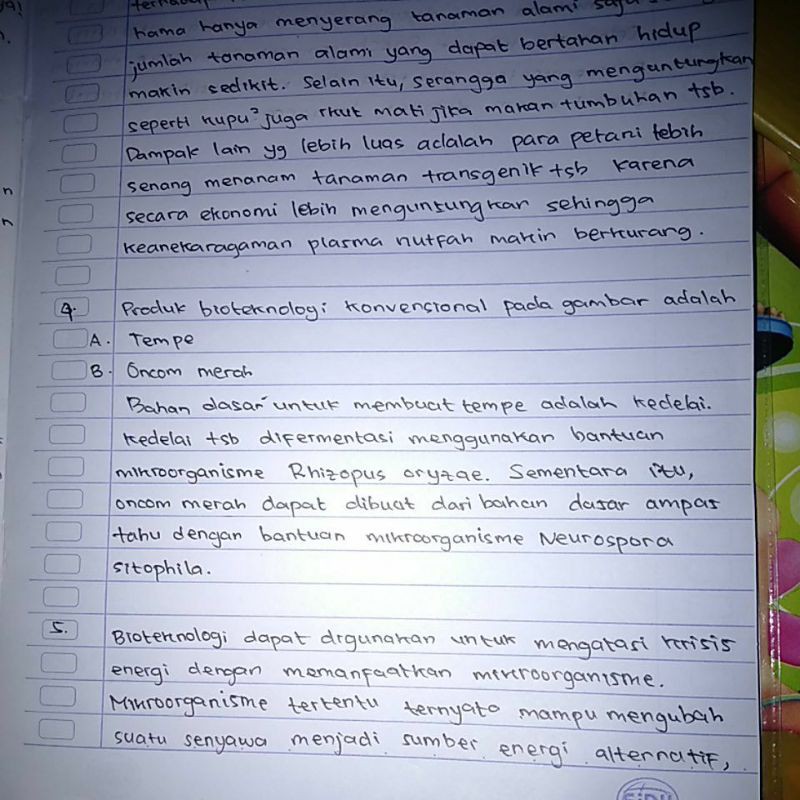 hama hanya menyerang tanaman alami
jumlah tanaman alami yang dapat bertahan hidup
makin sedikit. Selain itu, serangga yang menguntungkan
seperti kupu² juga ikut mati jika makan tumbuhan tsb.
Dampak lain yg lebih luas adalah para petani lebih
senang menanam tanaman transgenik tsb karena
secara ekonomi lebih menguntungkan sehingga
keanekaragaman plasma nutfah makin berkurang.
4. Produk bioteknologi konvensional pada gambar adalah
A. Tempe
B. Oncom merah
Bahan dasar untuk membuat tempe adalah kedelai.
kedelai tsb difermentasi menggunakan bantuan
mikroorganisme Rhizopus oryzae. Sementara itu,
oncom merah dapat dibuat dari bahan dasar ampas
tahu dengan bantuan mikroorganisme Neurospora
sitophila.
5. Bioteknologi dapat digunakan untuk mengatasi krisis
energi dengan memanfaatkan mikroorganisme.
Mikroorganisme tertentu ternyata mampu mengubah
suatu senyawa menjadi sumber energi alternatif,
SIDU